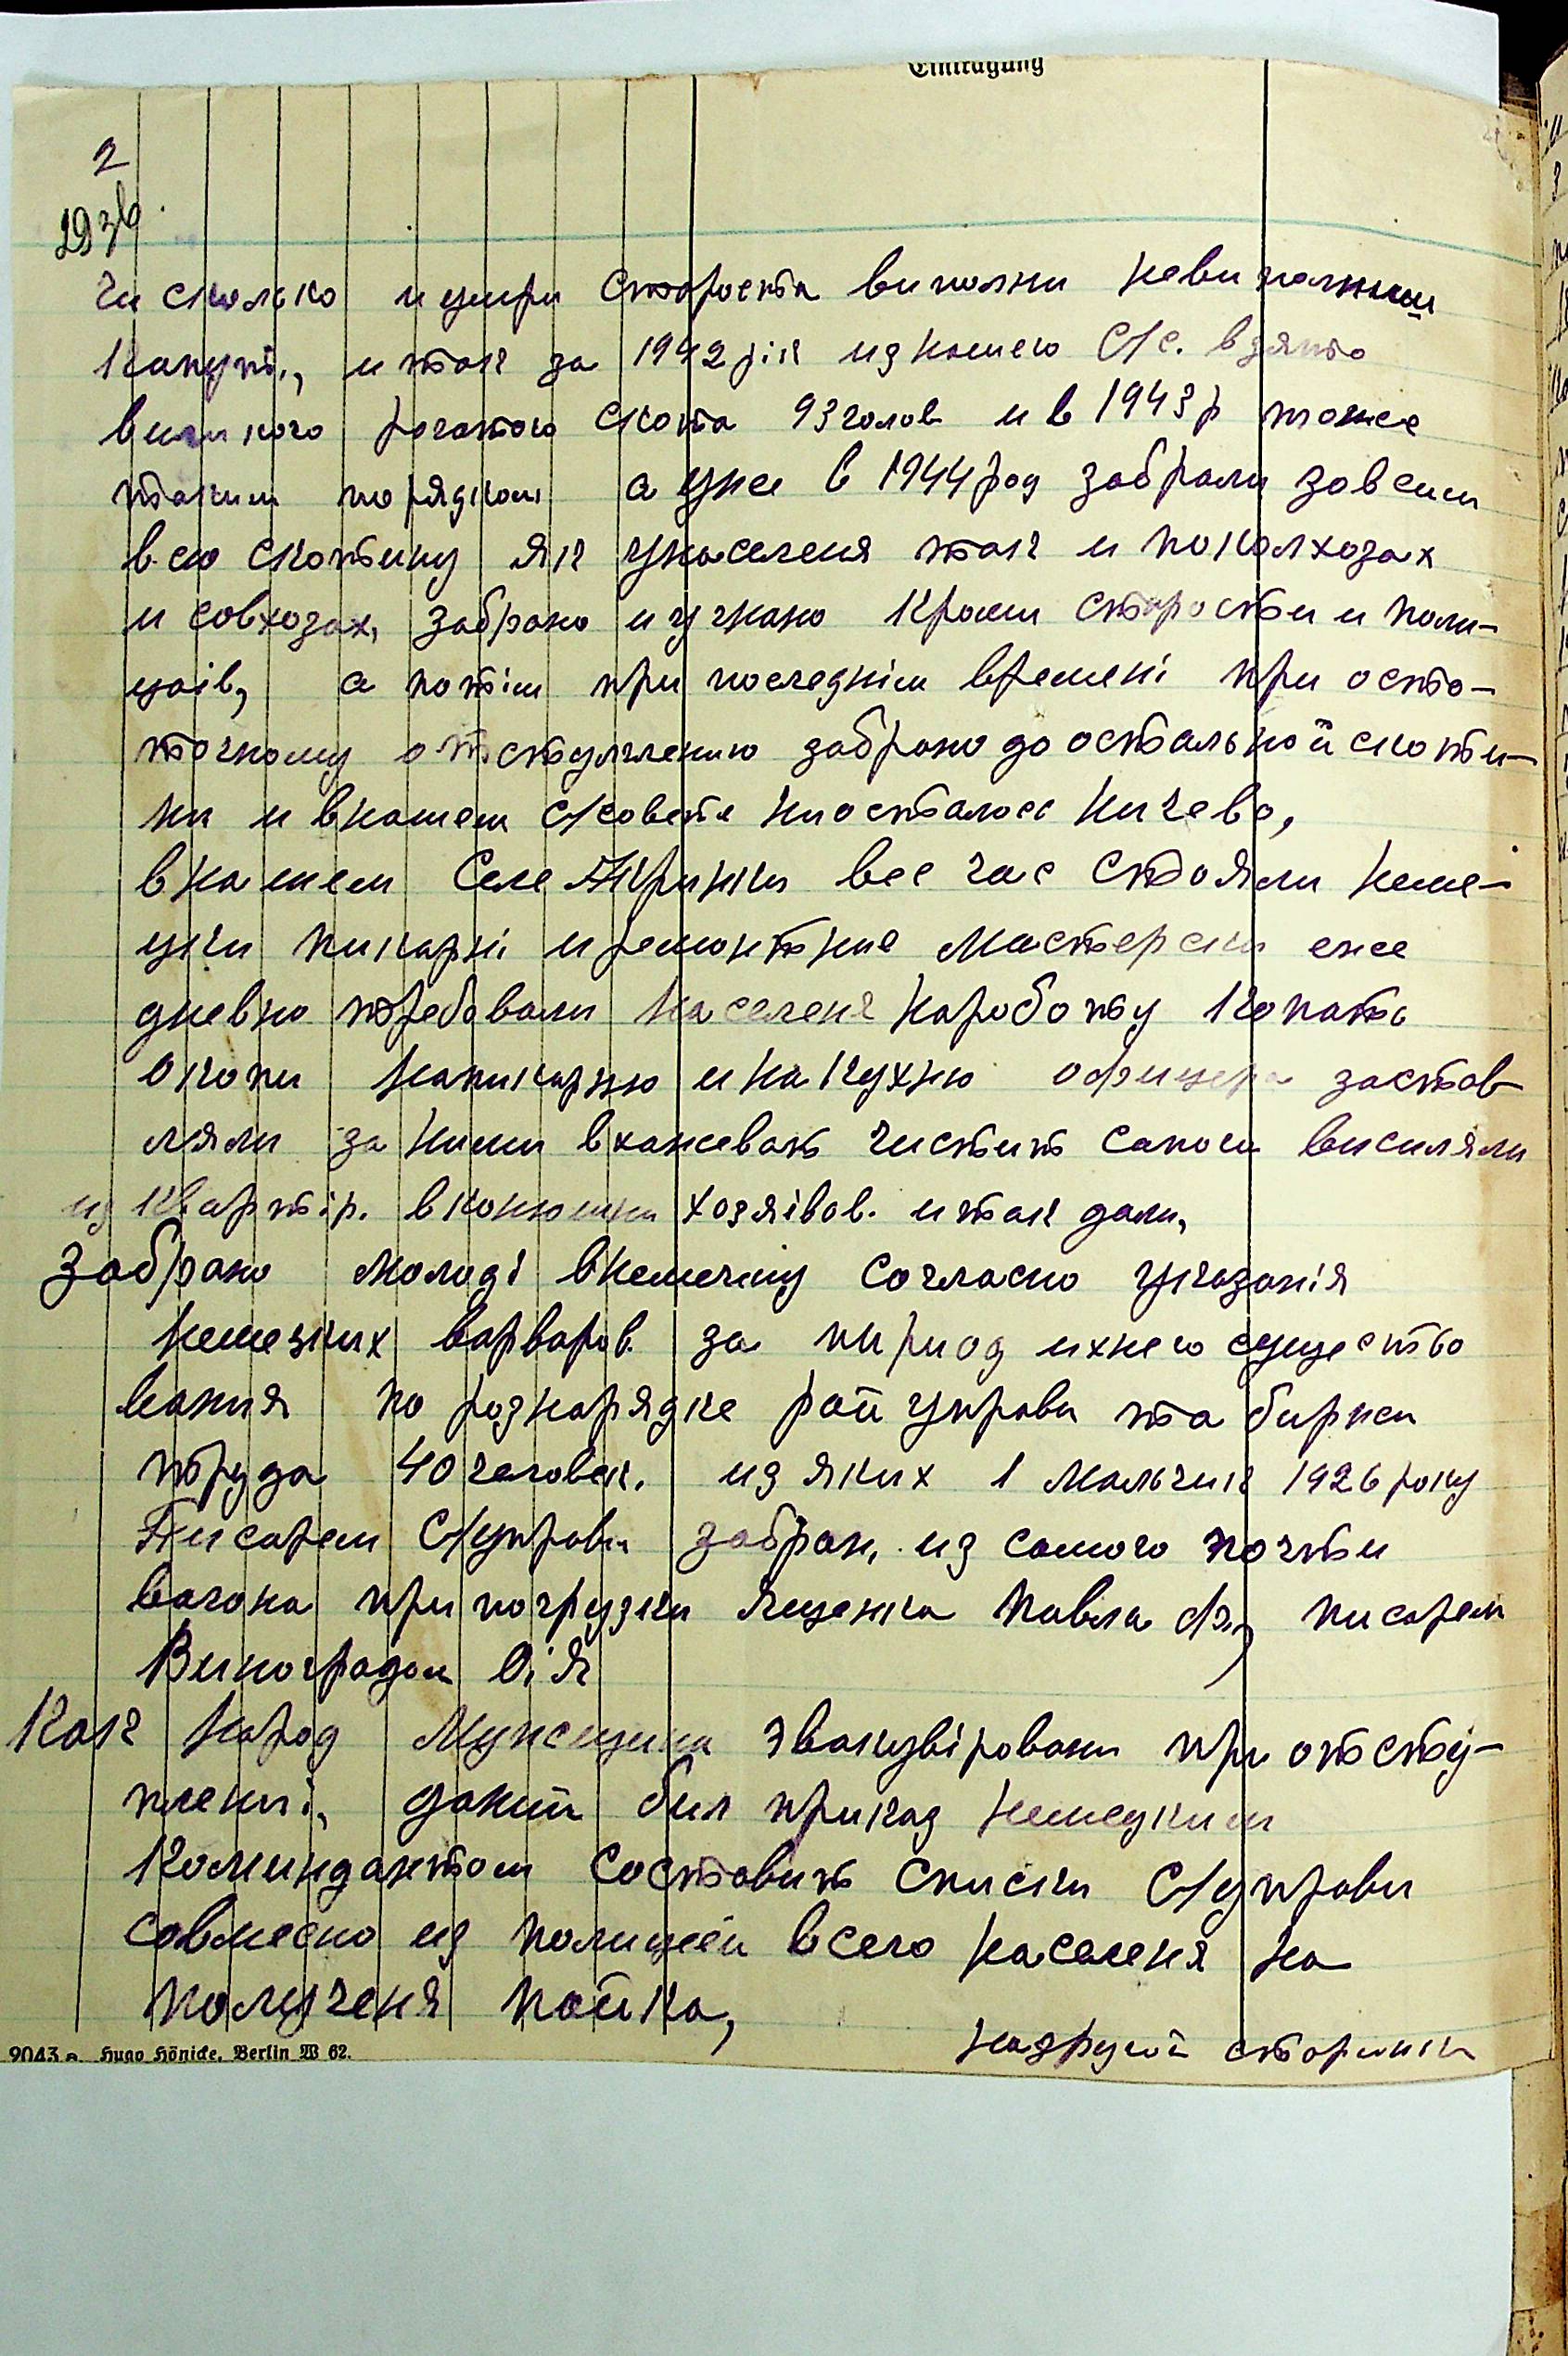 Eintragung
2
293в.
чи сколько и умри староста виполни невиполниш
капут., и так за 1942 рік из нашего С/с. взято
виликого рогатого скота 93 голов и в 1943 р тоже
таким порядком а уже в 1944 год забрали зовсим
всю скотину як унаселеня так и поколхозах
и совхозах, забрано и угнано кроми старости и поли-
цаів, а потім при последнім времені при оста-
точному отступлению забрано до остальной скоти-
ни и внашем с/совете ниосталос ничево,
внашем Селе Аkринки все час стояли неме-
цки пикарні и ремонтние мастерски еже
дневно требовали населеня наработу копать
окопи напикарню и на кухню офицера застав
ляли за ними вхажеват чистит сапоги висиляли
из квартір. вконюшни хозяівов. и так дали,
Забрано молоді внемечину согласно указанія
немезких варваров за пириод ихнего существо
вания по рознарядке рай управи та биржи
труда 40 человек. из яких 1 мальчик 1926 року
Писарем С/управи забран, из самого почти
вагона при погрузки Яценка Павла Аз, писарем
Виноградом О.Я
Как народ Мужщини эвакувіровани при отсту-
плениі, даний бил приказ немецким
Коминдантом составит списки С/управи
совмесно из полицией всего населеня на
получения пайка,
надругой сторинки
9043 a Hugo Hönicke, Berlin W 62.